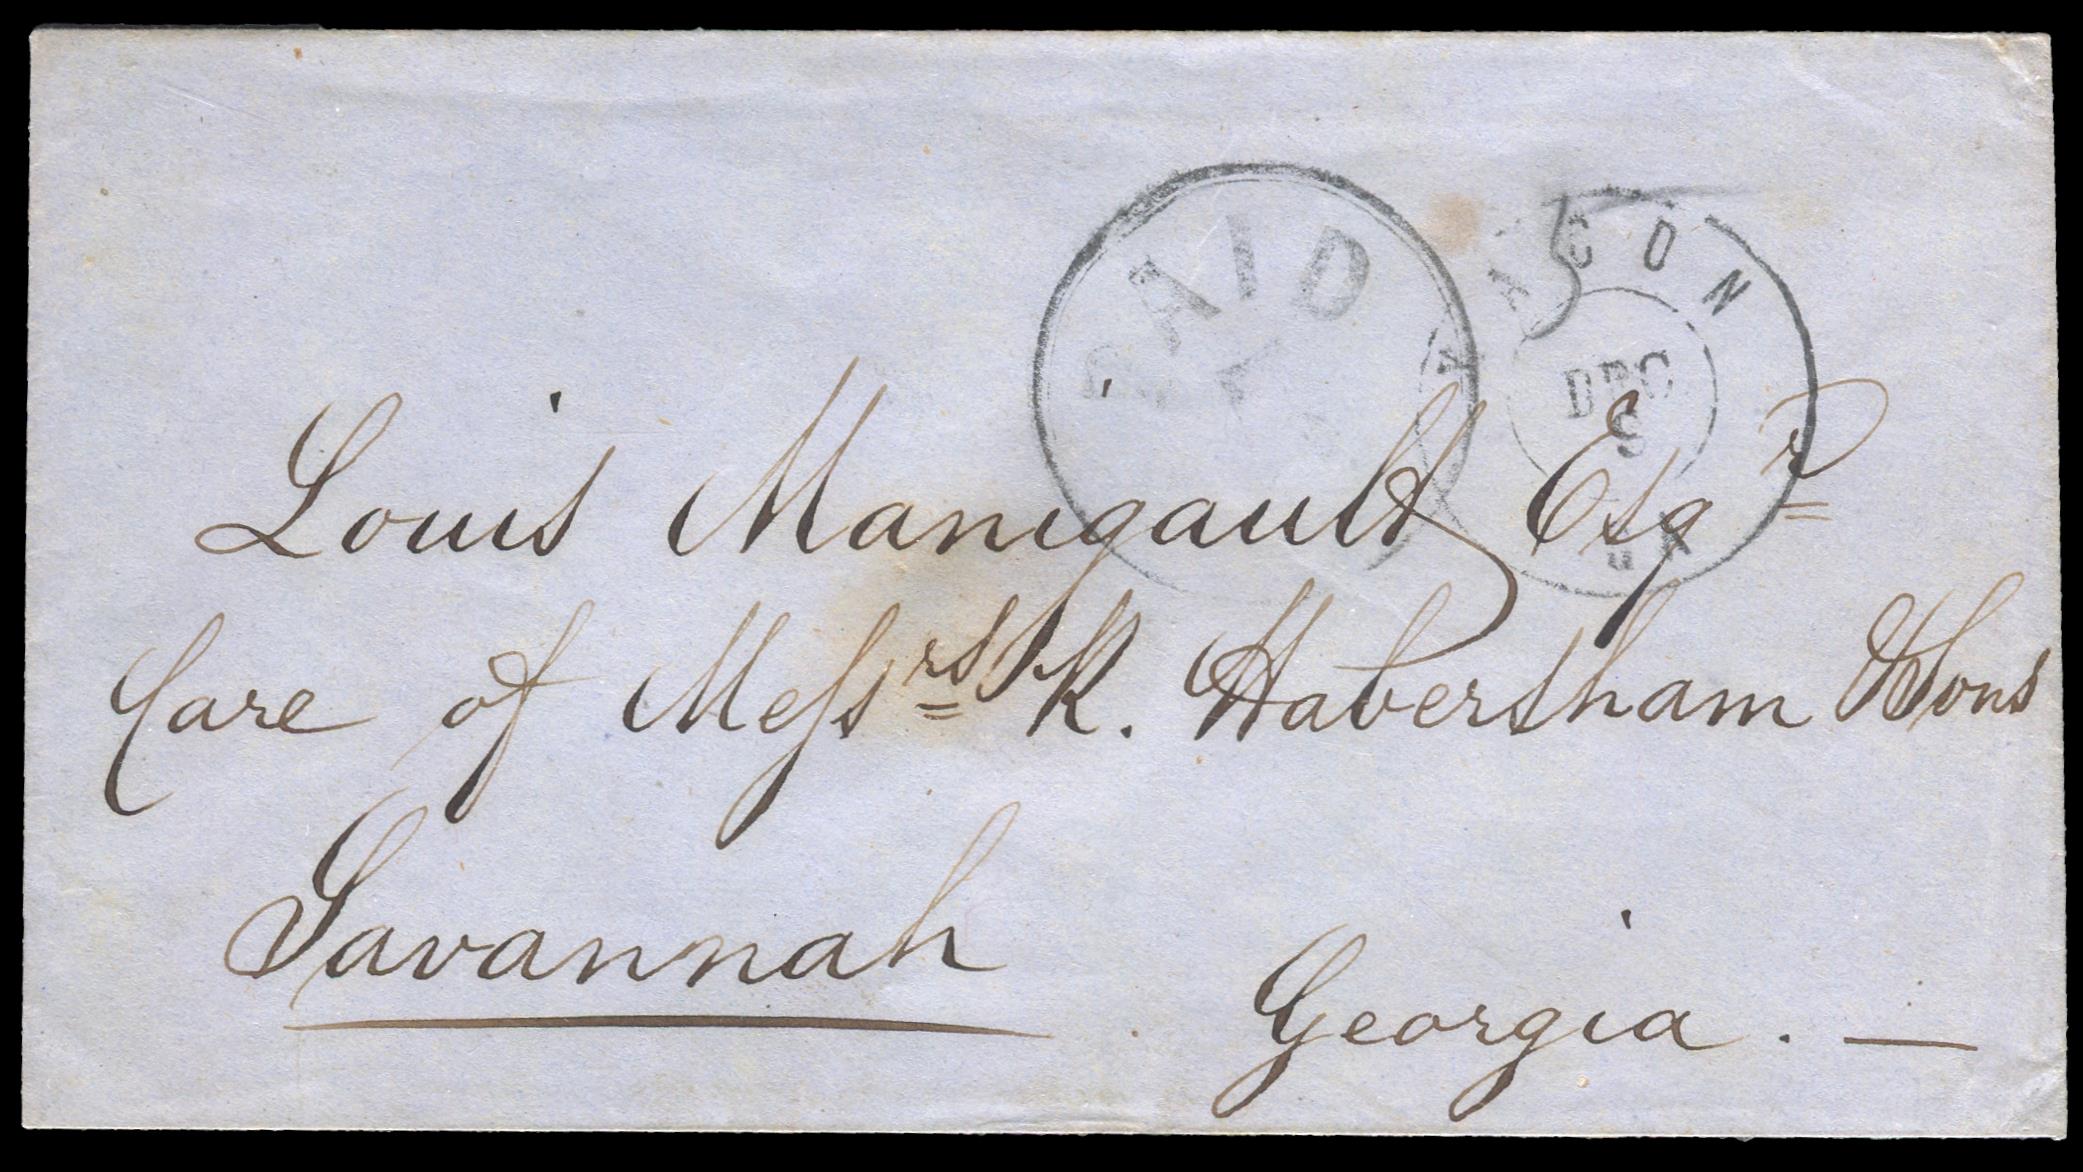 PAID
5
MACON
DEC
9
GA
Louis Manigault Esqr
Care of Messrs R. Habersham & Sons
Savannah
Georgia. —